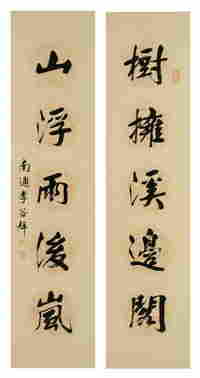 樹擁溪邊閣
山浮雨後嵐
南通李